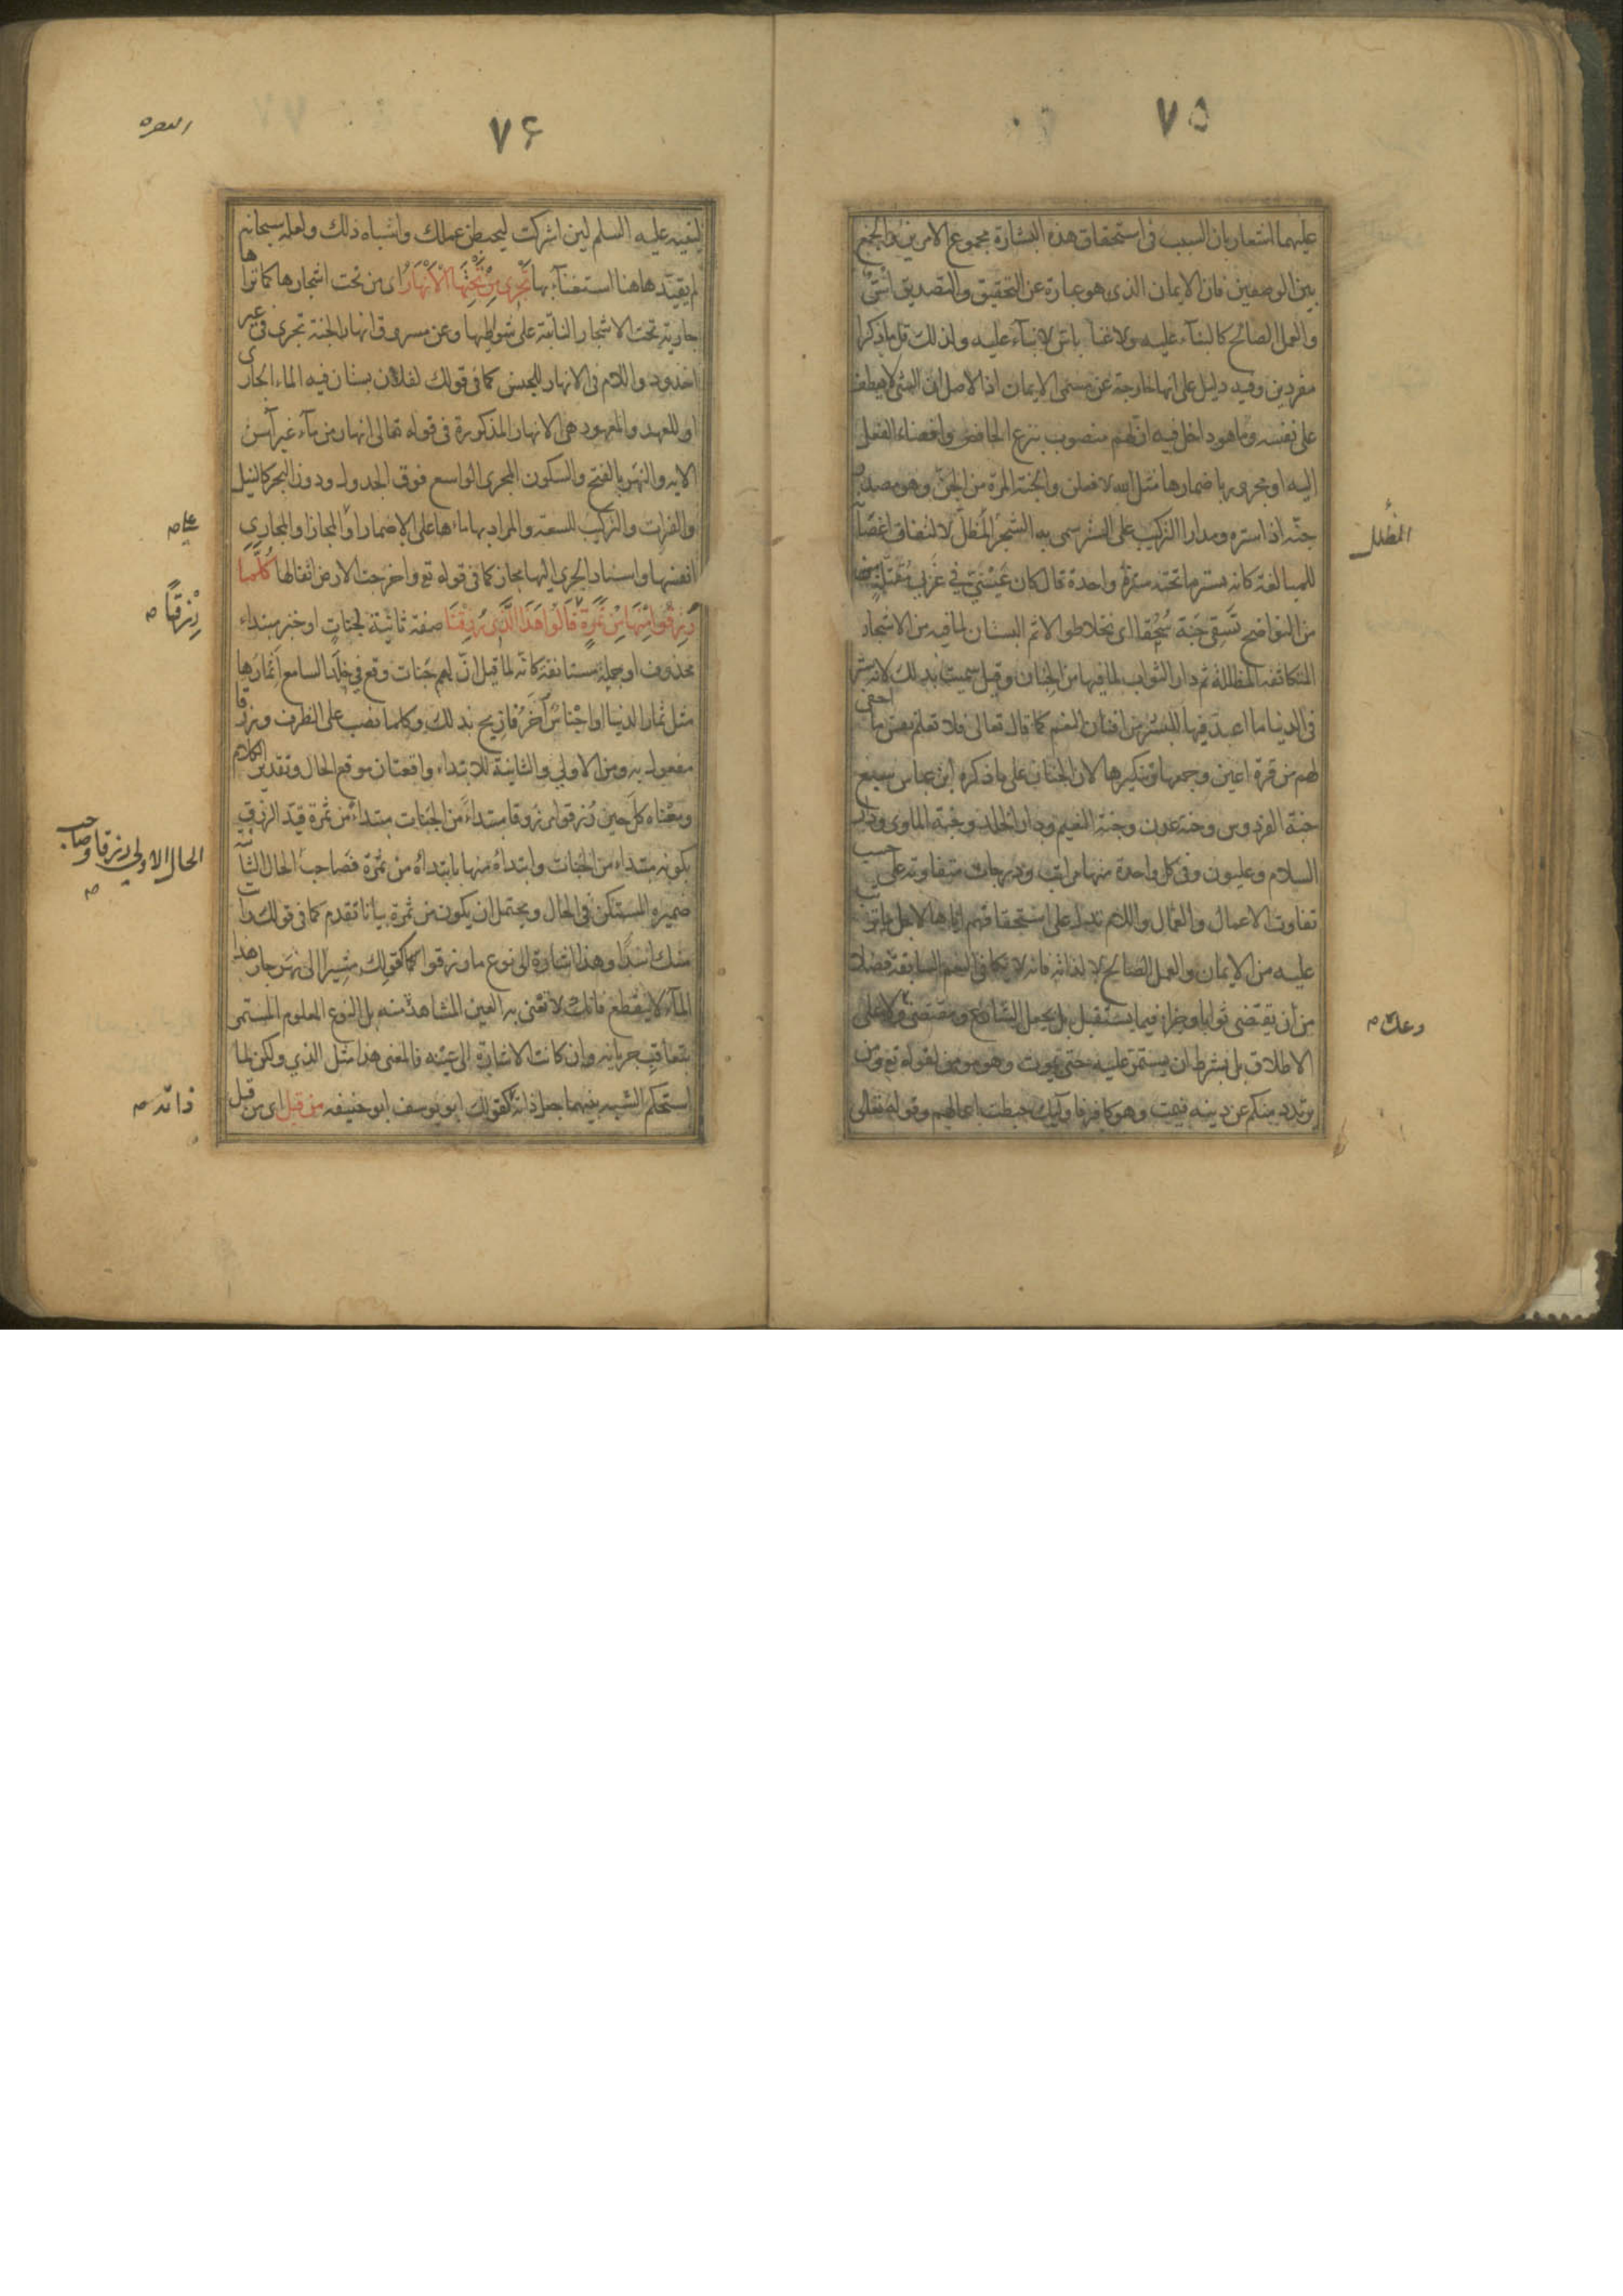 ٧۵
عليهما اشعار بان السبب فى استحقاق هذه البشارة مجموع الامرين والجمع
بين الوصفين فان الايمان الذى هو عبارة عن التحقيق والتصديق اسّ
والعمل الصالح كالبنآء عليه ولا غناء باسّ لا بنآء عليه ولذلك قل ما ذكرا
مفردين وفيه دليل على انها خارجة عن مسمى الايمان اذا الاصل ان الشئ لا يعطف
على نفسه وما هو داخل فيه ان لهم منصوب بنزع الخافض وافضاء الفعل
اليه او مجرور باضمارها مثل الله لافعلن والجنة المرة من الجن وهو مصدر
جنّه اذا ستره ومدار التركيب على الستر سمى به الشجر المظلّ لالتفاف اغصا
المظلل
للمبالغة كانه يستر ما تحته سترة واحدة قال كان عَيْنَيّ فى غَربى مُقَتّلة
من النواضح تَسقِى جَنة سُحُقا اى نخلا طوالا ثم البستان لما فيه من الاشجار
المتكاثفة المظللة ثم دار الثواب لما فيها من الجنان وقيل سميت بذلك لانه ستر
فى الدنيا ما اعدّ فيها للبشر من افنان النعم كما قال تعالى فلا تعلم نفس ما اخفى
لهم من قرة اعين وجمعها وتنكيرها لان الجنان على ما ذكره ابن عباس سبع
جنة الفردوس وجنة عدن وجنة النعيم ودار الخلد وجنة الماوى ودار
السلام وعليون وفى كل واحدة منها مراتب ودرجات متفاوتة على حسب
تفاوت الاعمال والعمال واللام تدل على استحقاقهم اياها لاجل ما ترتب
عليه من الايمان والعمل الصالح لا لذاته فانه لا يكافى النعم السابقة فضلا
من ان يقتضى ثوابا وجزاء فيما يستقبل بل بجعل الشارع ومقتضى ولا على
وعده صح
الاطلاق بل بشرط ان يستمر عليه حتى يموت وهو مومن لقوله تع ومن
يرتدد منكم عن دينه فيمت وهو كافر فاولئك حبطت اعمالهم وقوله تعالى
٧۶
البقره
لنبيه عليه السلم لئن اشركت ليحبطن عملك واشباه ذلك ولعله سبحانه
لم يقيد هاهنا استغنآء بها تَجْرِى مِنْ تَحْتِهَا الْاَنْهَارُ اى من تحت اشجارها كما تراها
جارية تحت الاشجار النابتة على شواطيها وعن مسروق انهار الجنة تجرى فى غير
اخدود واللام فى الانهار للجنس كما فى قولك لفلان بستان فيه الماء الجارى
او للعهد والمعهود هى الانهار المذكورة فى قوله تعالى انهار من مآء غير آسن
الايه والنهر بالفتح والسكون المجرى الواسع فوق الجدول ودون البحر كالنيل
والفرات والتركيب للسعة والمراد بها ماءها على الاضمار او المجاز او المجارى
انفسها واسناد الجرى اليها مجاز كما فى قوله تع واخرجت الارض اثقالها كُلَّمَا
رُزِقُوا مِنْهَا مِنْ ثَمَرَةٍ قَالُوا هَذَا الَّذِى رُزِقْنَا صفة ثانية لجنات او خبر مبتداء
رِزْقًا صح
محذوف او جملة مستانفة كانه لما قيل انّ لهم جنات وقع فى خلد السامع اثمارها
مثل ثمار الدنيا او اجناس اخر فازيح بذلك وكلما نصب على الظرف ورزقا
مفعول به ومن الاولى والثانية للابتداء واقعتان موقع الحال وتقدير الكلام
ومعناه كل حين رُزقوا مرزوقا مبتداءً من الجنات مبتداء من ثمرة قيد الرزق
بكونه مبتداء من الجنات وابتداءُه منها بابتداءه من ثمرة فصاحب الحال الثانية
الحال الاولى رزقا وصاحب صح
ضميره المستكن فى الحال ويحتمل ان يكون من ثمرة بيانا تقدم كما فى قولك رايت
منك اسدًا وهذا اشارة الى نوع ما رزقوا كقولك مشيرًا الى نهر جار هذا
المآء لا ينقطع فانك لا تعنى به العين المشاهد منه بل النوع المعلوم المستمر
بتعاقب جريانه وان كانت الاشارة الى عينه فالمعنى هذا مثل الذى ولكن لما
استحكم الشبه بينهما جعل ذاته كقولك ابو يوسف ابو حنيفه من قبل اى من قبل
ذاته صح